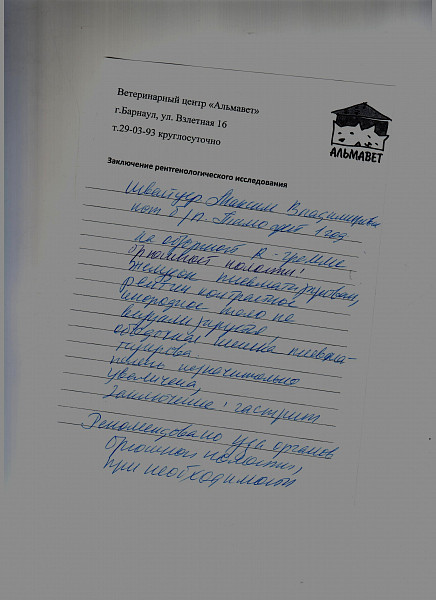 Ветеринарный центр «Альмавет»
г.Барнаул, ул. Взлетная 16
т.29-03-93 круглосуточно
АЛЬМАВЕТ
Заключение рентгенологического исследования
Максим Владимирович
кот б/п Тимофей 1 год
на обзорной R-грамме
брюшной полости:
желудок пневматизирован,
рентген контрастное
инородное тело не
визуализируется
ободочная кишка пневма-
тизирована
печень незначительно
увеличена,
Заключение: гастрит
Рекомендовано узи органов
брюшной полости,
при необходимости